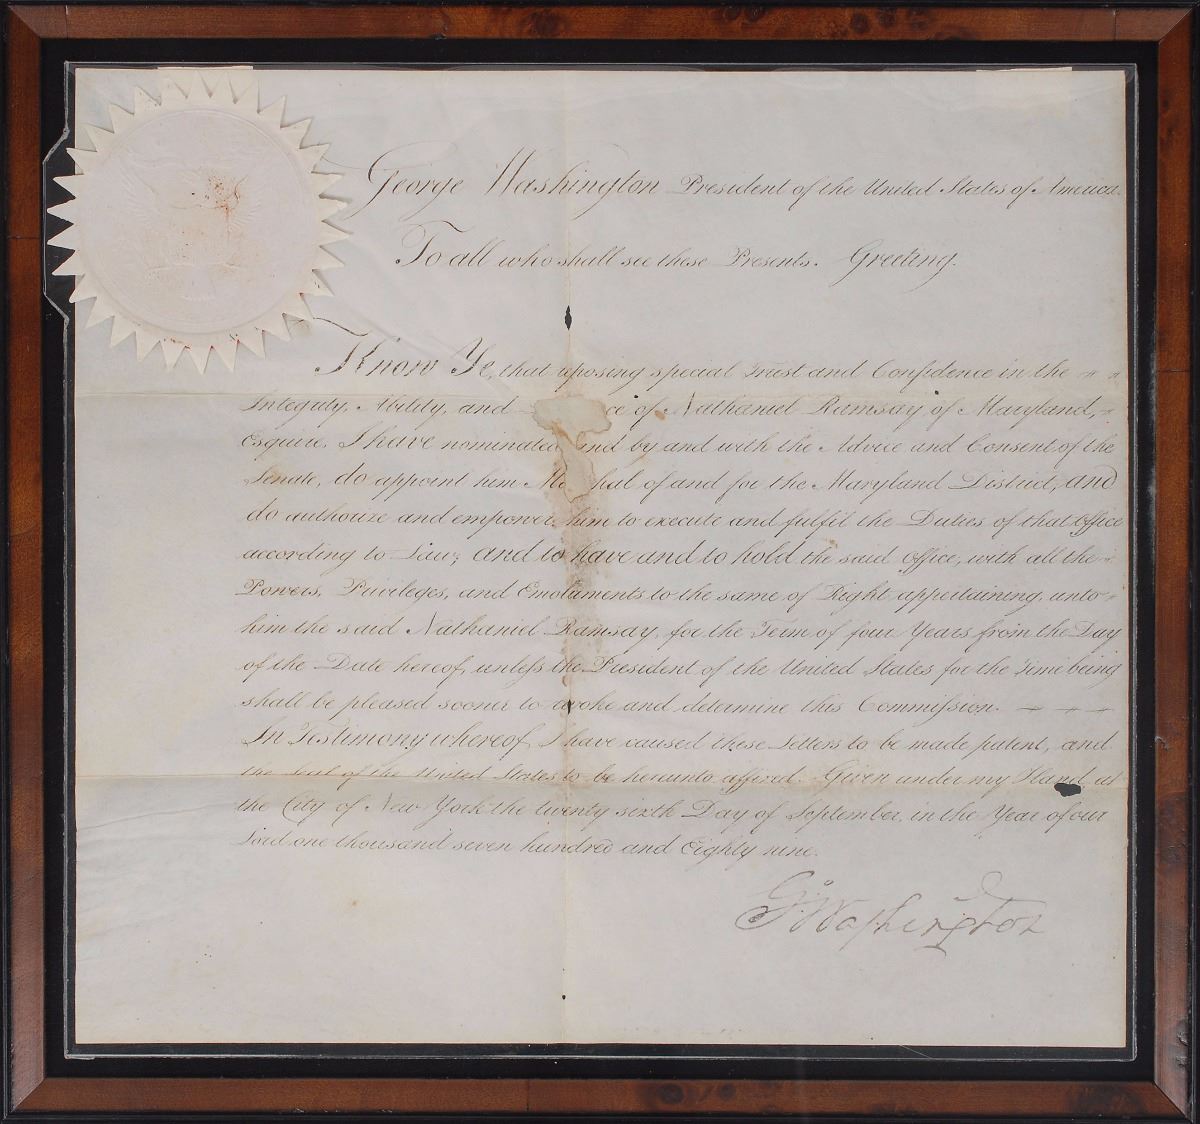 George Washington President of the United States of America.
To all who shall see these Presents. Greeting.
Know Ye, that reposing special Trust and Confidence in the
Integrity, Ability, and ce of Nathaniel Ramsay of Maryland,
Esquire, I have nominated and by and with the Advice and Consent of the
Senate, do appoint him Ma hal of and for the Maryland District, and
do authorize and empower him to execute and fulfil the Duties of that Office
according to Law; and to have and to hold the said Office, with all the
Powers, Privileges, and Emoluments to the same of Right appertaining, unto
him the said Nathaniel Ramsay, for the Term of four Years from the Day
of the Date hereof, unless the President of the United States for the Time being
shall be pleased sooner to revoke and determine this Commission.
In Testimony whereof, I have caused these Letters to be made patent, and
the Seal of the United States to be hereunto affixed. Given under my Hand at
the City of New York the twenty sixth Day of September, in the Year of our
Lord one thousand seven hundred and Eighty nine.
Go Washington